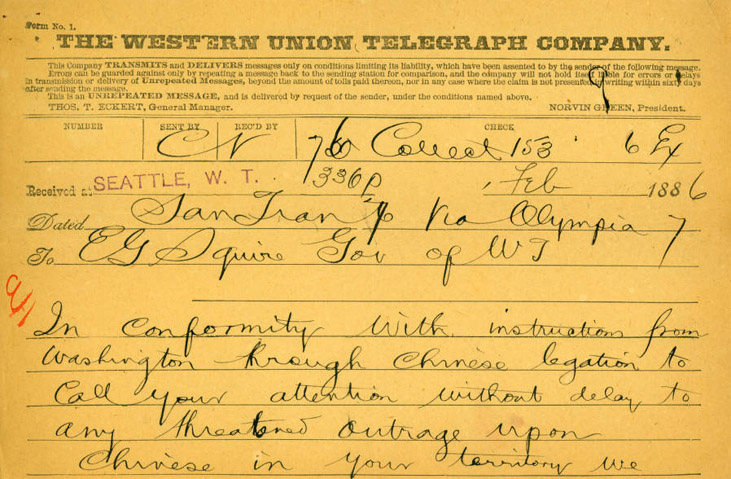 Form No. 1.
THE WESTERN UNION TELEGRAPH COMPANY.
This Company TRANSMITS and DELIVERS messages only on conditions limiting its liability, which have been assented to by the sender of the following message.
Errors can be guarded against only by repeating a message back to the sending station for comparison, and the company will not hold itself liable for errors or delays
in transmission or delivery of Unrepeated Messages, beyond the amount of tolls paid thereon, nor in any case where the claim is not presented in writing within sixty days
after sending the message.
This is an UNREPEATED MESSAGE, and is delivered by request of the sender, under the conditions named above.
THOS. T. ECKERT, General Manager. NORVIN GREEN, President.
NUMBER SENT BY REC'D BY CHECK
CN Collect 153 6 Ex
Received at SEATTLE, W. T. 336p Feb 1886
Dated San Fran Via Olympia 7
To EG Squire Gov of WT
In conformity with instruction from
Washington through Chinese legation to
Call your attention without delay to
any threatened outrage upon
Chinese in your territory we